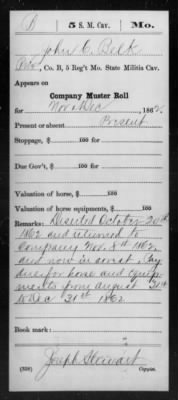 B 5 S. M. Cav. Mo.
John C. Belk
Pvt, Co. B, 5 Reg't Mo. State Militia Cav.
Appears on
Company Muster Roll
for Nov & Dec, 1862.
Present or absent Present
Stoppage, $ 100 for
Due Gov't, $ 100 for
Valuation of horse, $ 100
Valuation of horse equipments, $ 100
Remarks: Deserted October 20th
1862 and returned to
Company Nov. 8th 1862
and now in arrest. Pay
due for horse and equip
ments from august 31st
to Dec 31st 1862
Book mark:
Joseph Stewart
(358) Copyist.